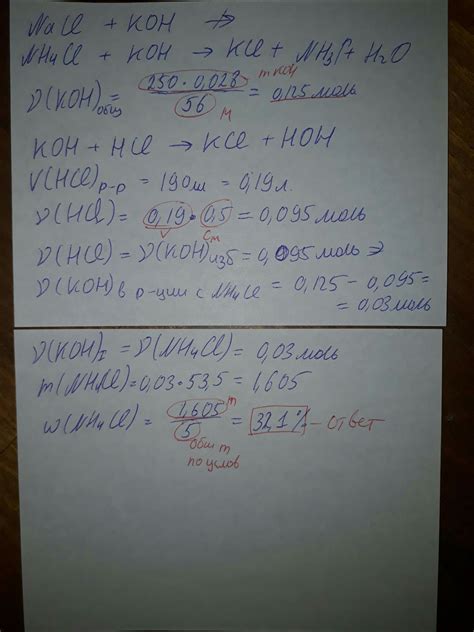 NaCl + KOH ↛
NH4Cl + KOH → KCl + NH3↑ + H2O
ν(KOH)общ = 250 · 0,028 / 56 = 0,125 моль
m KOH
M
KOH + HCl → KCl + HOH
V(HCl)р-р = 190мл = 0,19 л.
ν(HCl) = 0,19 · 0,5 = 0,095 моль
V Cм
ν(HCl) = ν(KOH)изб = 0,095 моль ⇒
ν(KOH) в р-ции с NH4Cl = 0,125 - 0,095 =
= 0,03 моль
ν(KOH)I = ν(NH4Cl) = 0,03 моль
m(NH4Cl) = 0,03 · 53,5 = 1,605
ω(NH4Cl) = 1,605 / 5 = 32,1 % - ответ
m
общ m
по услов